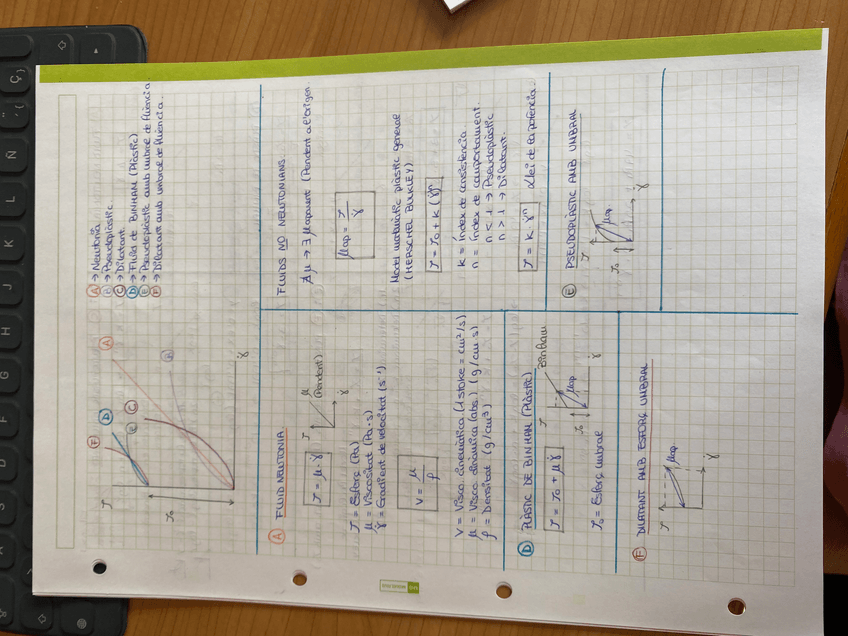 τ
τ₀
γ̇
F
D
E
C
A
B
A → Newtonià
B → Pseudoplàstic
C → Dilatant.
D → Fluid de BINHAN (Plàstic)
E → Pseudoplàstic amb umbral de fluència
F → Dilatant amb umbral de fluència.
A FLUID NEWTONIÀ
τ = μ · γ̇
τ
μ
(Pendent)
γ̇
τ = Esforç (Pa)
μ = Viscositat (Pa·s)
γ̇ = Gradient de velocitat (s⁻¹)
V = μ / ρ
V = Visco. cinemàtica (1 stoke = cm²/s)
μ = Visco. dinàmica (abs.) (g/cm s)
ρ = Densitat (g/cm³)
FLUIDS NO NEWTONIANS.
∄ μ → ∃ μ aparent (Pendent a l'origen.
μap = τ / γ̇
Model matemàtic plàstic general
(HERSCHEL BULKLEY)
τ = τ₀ + k (γ̇)ⁿ
k = Índex de consistència
n = Índex de comportament.
n < 1 → Pseudoplàstic
n > 1 → Dilatant.
τ = k · γ̇ⁿ
llei de la potència.
D PLÀSTIC DE BINHAN (Plàstic)
τ = τ₀ + μ γ̇
τ
Binham
μap
τ₀
γ̇
τ₀ = Esforç umbral
E PSEUDOPLÀSTIC AMB UMBRAL
τ
μap
τ₀
γ̇
F DILATANT AMB ESFORÇ UMBRAL
τ
μap
γ̇
Ç
Ñ
L
K
J
H
G
F
D
S